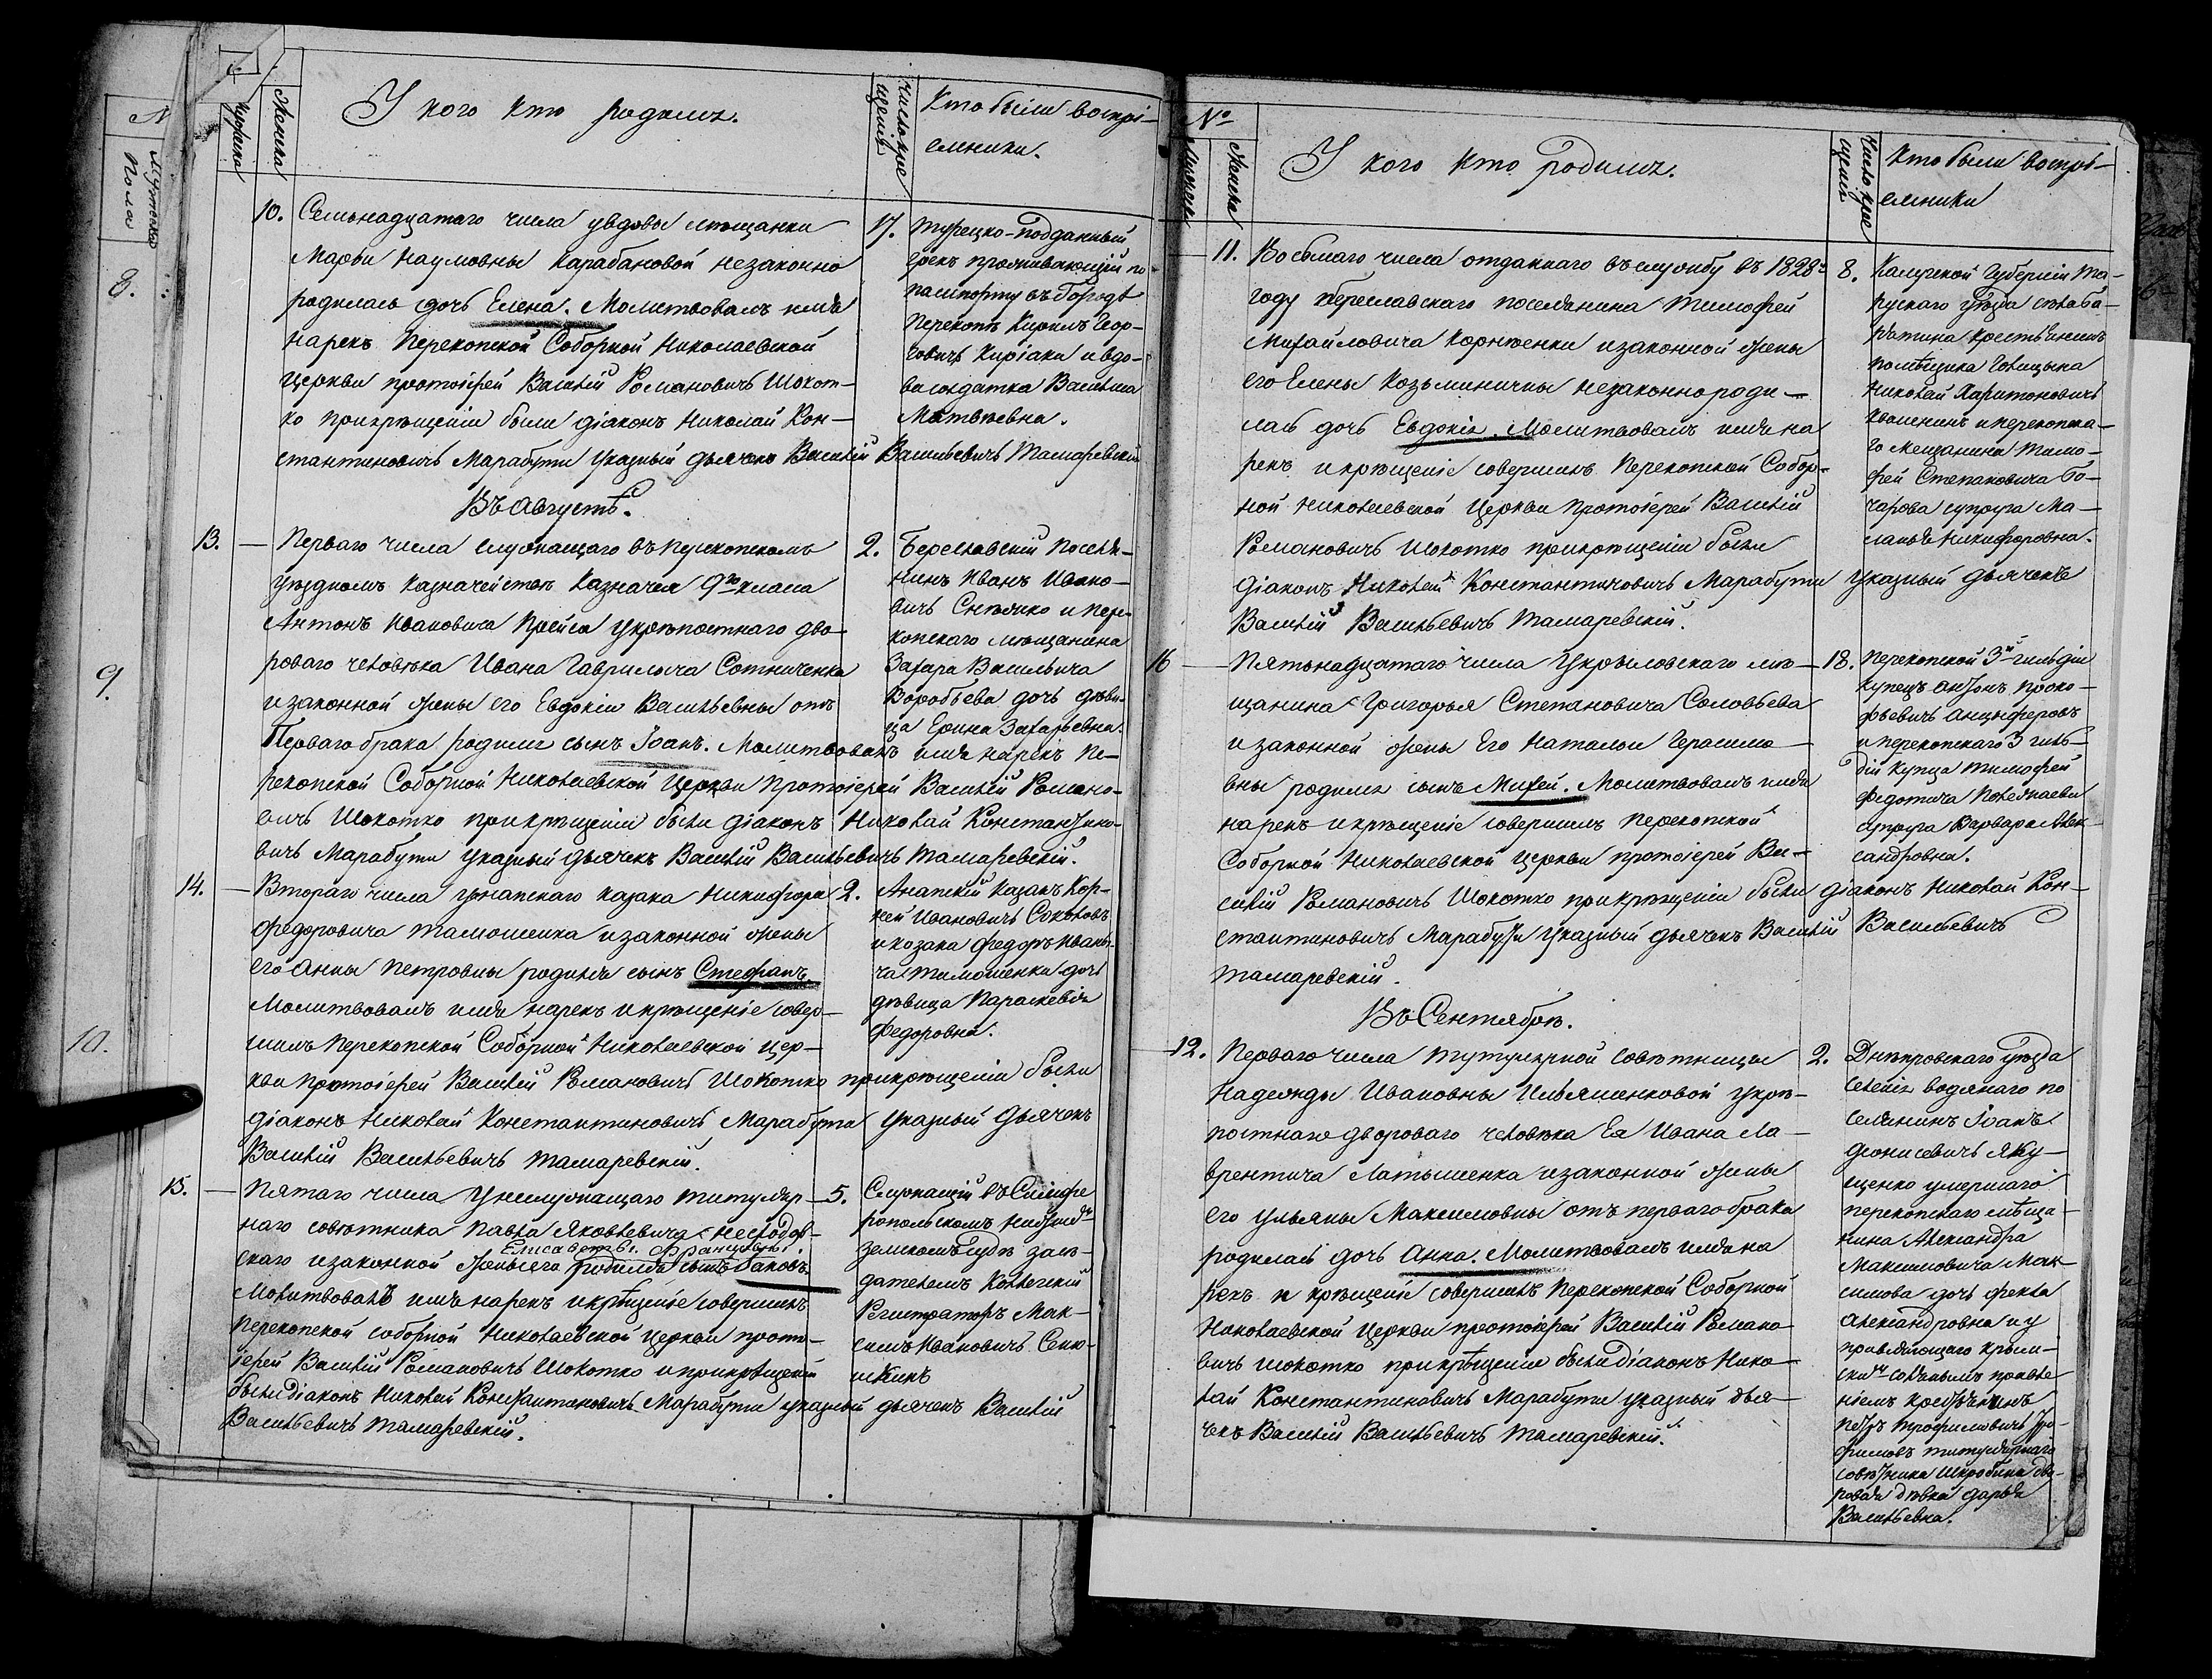 №
Мужеска
Женска
У кого кто родился.
Число крещенія
Кто были воспрі-
емники.
Мужеска
Пола
8.
9.
10.
10. Семьнадцатаго числа увдовы мѣщанки
Марѳы Наумовны Карабановой незаконно
родилась дочь Елена. Молитвовалъ имя
нарекъ Перекопской Соборной Николаевской
церкви протоіерей Василій Романовичъ Шокот-
ко прикрѣщеніи были діаконъ Николай Кон-
стантиновичъ Марабути Указный дьячекъ Василій Васильевичъ Тамаревскій
17. Турецко-подданный
грекъ проживающій по
пашпорту въ городѣ
Перекопѣ Кирилъ Геор-
говичъ Киріаки и вдо-
ва солдатка Василиса
Матвѣевна.
Въ Августѣ.
13. — Перваго числа служащаго въ Перекопскомъ
уѣздномъ Казначействѣ Казначея 9го класа
Антонъ Ивановича Прейса Укрѣпостнаго дво-
роваго человѣка Ивана Гаврилыча Сотниченка
и законной жены его Евдокіи Васильевны отъ
Перваго брака родился сынъ Іоанъ. Молитвовалъ имя нарекъ Пе-
рекопской Соборной Николаевской Церкви Протоіерей Василій Романо-
вичъ Шокотко прикрѣщеніи были діаконъ Николай Константино-
вичъ Марабути Указный дьячекъ Василій Васильевичъ Тамаревскій.
2. Береславскій Поселя-
нинъ Иванъ Ивано-
вичъ Снѣжко и Пере-
копскаго мѣщанина
Захара Васильича
Воробьева дочь дѣви-
ца Ерина Захарьевна.
14. — Втораго числа уанапскаго казака Никифора
Федоровича Тамошенка и законной жены
его Анны Петровны родился сынъ Стефанъ.
Молитвовалъ имя нарекъ и крѣщеніе совер-
шилъ Перекопской Соборной Николаевской цер-
кви Протоіерей Василій Романовичъ Шокотко прикрѣщеніи были
діаконъ Николай Константиновичъ Марабути Указный Дьячекъ
Василій Васильевичъ Тамаревскій.
2. Анапскій Казакъ Кор-
ней Ивановичъ Соколовъ
и козака Федоръ Иваны-
ча Тимошенки дочь
дѣвица Параскевія
Федоровна.
15. — Пятаго числа Унеслужащаго Титуляр-
наго совѣтника Павла Яковлевича
скаго и законной жены его Елисаветы Францовны родился сынъ Іаковъ.
Молитвовалъ имя нарекъ и крѣщеніе совершилъ
Перекопской соборной Николаевской Церкви прото-
іерей Василій Романовичъ Шокотко и прикрѣщеніи
были діаконъ Николай Константиновичъ Марабути указный дьячекъ Василій
Васильевичъ Тамаревскій.
5. Служащій въ Симфе
ропольскомъ
земскомъ Судѣ засѣ-
дателемъ Колежскій
Регистраторъ Мак-
симъ Ивановичъ
№
Мужеска
Женска
У кого кто родился.
Число крещенія
Кто были воспрі-
емники
11. Восьмаго числа отданнаго въ службу въ 1828м
году береславскаго поселянина Тимофей
Михайловича Корнѣенки и законной жены
его Елены Козьминичны незаконно роди-
лась дочь Евдокія. Молитвовалъ имя на
рекъ и крѣщеніе совершилъ Перекопской Собор-
ной Николаевской Церкви Протоіерей Василій
Романовичъ Шокотко прикрѣщеніи были
Діаконъ Николай Константиновичъ Марабути Указный дьячекъ
Василій Васильевичъ Тамаревскій.
8. Калужской Губерніи Та-
рускаго уѣзда
крестьянинъ
помѣщика Голицына
Николай Харитоновичъ
и перекопска-
го мещанина Тимо-
фей Степановича Бо-
чарова супруга Ма-
ланья Никифоровна.
16 — Пятьнадцатаго числа мѣ-
щанина Григорья Степановича Соловьева
и законной жены Его Натальи Герасимо-
вны родился сынъ Михей. Молитвовалъ имя
нарекъ и крѣщеніе совершилъ Перекопской
Соборной Николаевской Церкви протоіерей Ва-
силій Романовичъ Шокотко прикрѣщеніи были діаконъ Николай Кон-
стантиновичъ Марабути Указный дьячекъ Василій Васильевичъ
Тамаревскій.
18. Перекопской 3й гильдіи
Купецъ Антонъ Проко-
фьевичъ Анцыферовъ
и перекопскаго 3 гиль-
діи Купца Тимофей
Федотича
супруга Варвара Алек-
сандровна.
Въ Сентябрѣ.
12. Перваго числа Титулярной совѣтницы
Надежды Ивановны Ильяшенковой Укрѣ-
постнаго двороваго человѣка Ея Ивана Ла-
врентича Латышенка и законной жены
Его Ульяны Максимовны отъ перваго брака
родилась дочь Анна. Молитвовалъ имя на
рекъ и крѣщеніе совершилъ Перекопской Соборной
Николаевской Церкви протоіерей Василій Романо-
вичъ Шокотко прикрѣщеніи были Діаконъ Нико-
лай Константиновичъ Марабути указный дья-
чекъ Василій Васильевичъ Тамаревскій.
2. Днѣпровскаго уѣзда
селенія водянаго по
селянинъ Іоанъ
Діонисевичъ Яку-
щенко умершаго
перекопскаго мѣща-
нина Александра
Максимовича Мак-
симова дочь Фекла
Александровна и у
правляющаго Крым-
скимъ солянымъ правле
ніемъ крестьянинъ
Петръ Трофимовичъ Тро-
фимовъ титулярнаго
совѣтника дво-
ровая дѣвка Дарья
Васильевна.